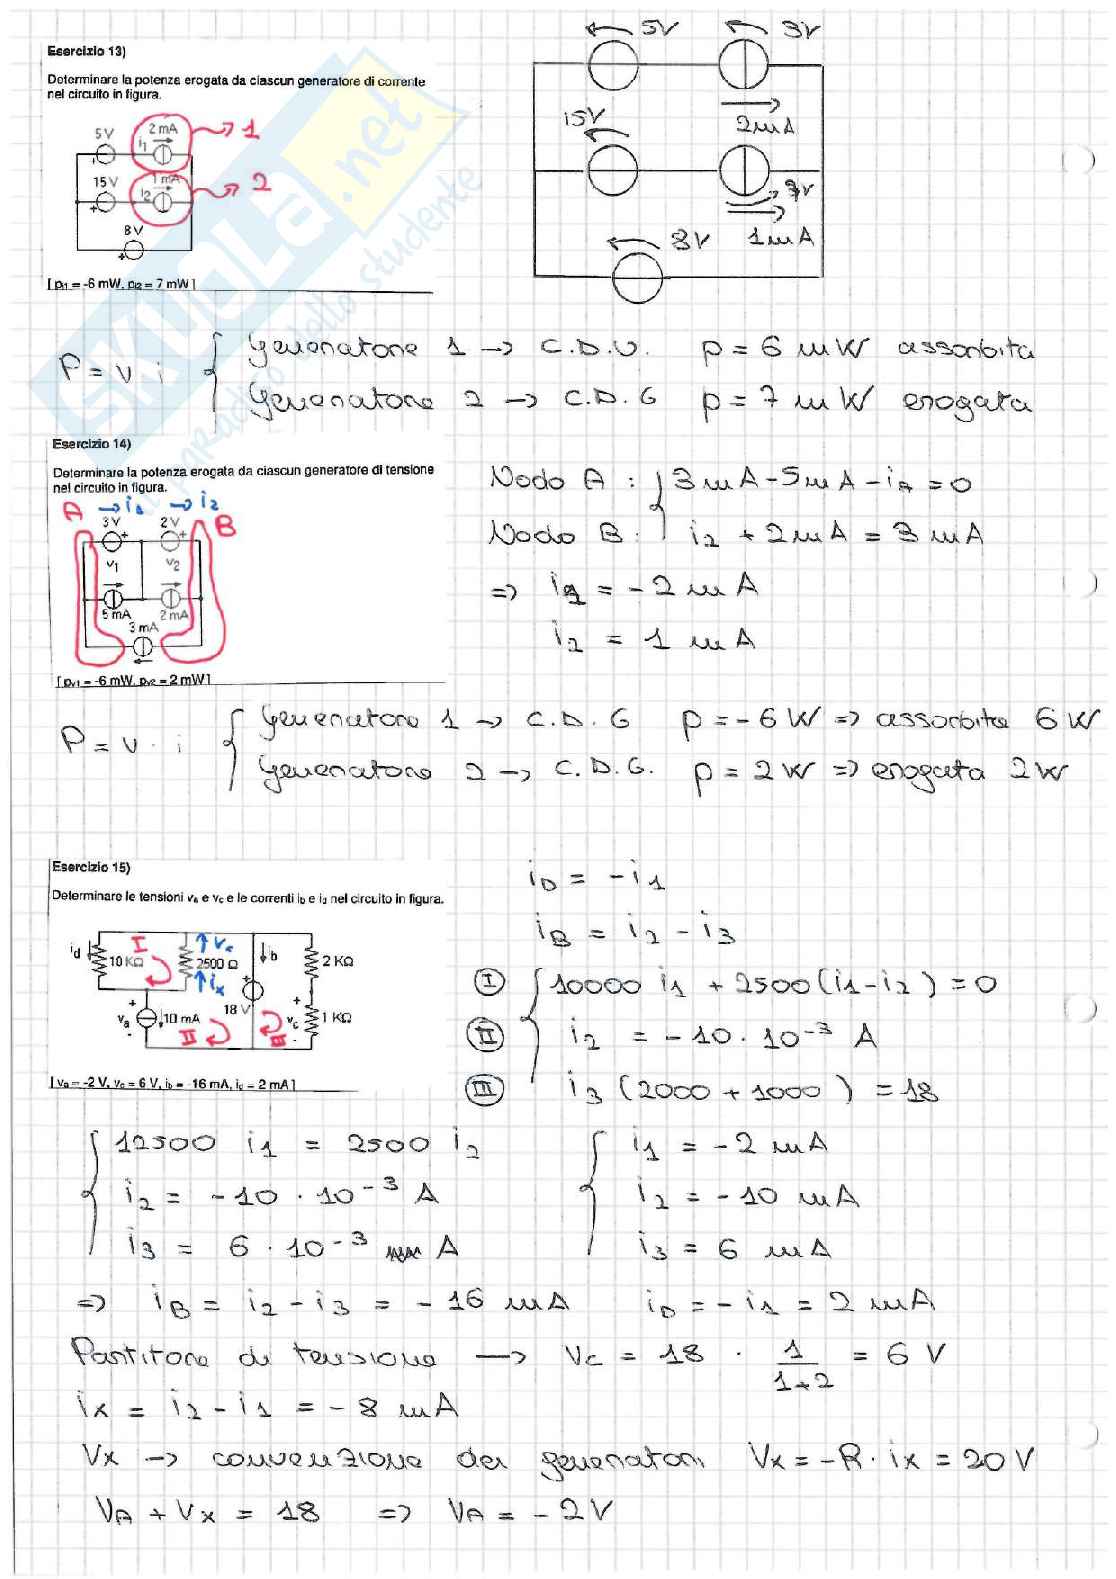 Esercizio 13)
Determinare la potenza erogata da ciascun generatore di corrente
nel circuito in figura.
5V
2 mA
i1
→ 1
15V
1 mA
i2
→ 2
8V
[ pi1 = -6 mW, pi2 = 7 mW ]
5V
3V
2mA
15V
7V
1mA
8V
P = v i
Generatore 1 → C.D.U. p = 6 mW assorbita
Generatore 2 → C.D.G p = 7 mW erogata
SKUOLA.net
Esercizio 14)
Determinare la potenza erogata da ciascun generatore di tensione
nel circuito in figura.
A → i1 → i2 B
3V 2V
v1 v2
5 mA 2 mA
3 mA
[ pv1 = -6 mW, pv2 = 2 mW ]
Nodo A : 3mA - 5mA - i1 = 0
Nodo B : i2 + 2mA = 3 mA
⇒ i1 = - 2 mA
i2 = 1 mA
P = v · i
Generatore 1 → C.D.G p = - 6 W ⇒ assorbite 6 W
Generatore 2 → C.D.G. p = 2 W ⇒ erogata 2 W
Esercizio 15)
Determinare le tensioni va e vc e le correnti ib e id nel circuito in figura.
id
10 KΩ
I
Vx
2500 Ω
ix
ib
2 KΩ
va
10 mA
II
18 V
III
vc
1 KΩ
[ va = -2 V, vc = 6 V, ib = -16 mA, id = 2 mA ]
iD = - i1
iB = i2 - i3
I 10000 i1 + 2500 (i1 - i2) = 0
II i2 = - 10 · 10-3 A
III i3 (2000 + 1000) = 18
12500 i1 = 2500 i2
i2 = - 10 · 10-3 A
i3 = 6 · 10-3 A
i1 = - 2 mA
i2 = - 10 mA
i3 = 6 mA
⇒ iB = i2 - i3 = - 16 mA iD = - i1 = 2 mA
Partitore di tensione → Vc = 18 · 1/1+2 = 6 V
ix = i2 - i1 = - 8 mA
Vx → convenzione dei generatori Vx = - R · ix = 20 V
VA + Vx = 18 ⇒ VA = - 2 V